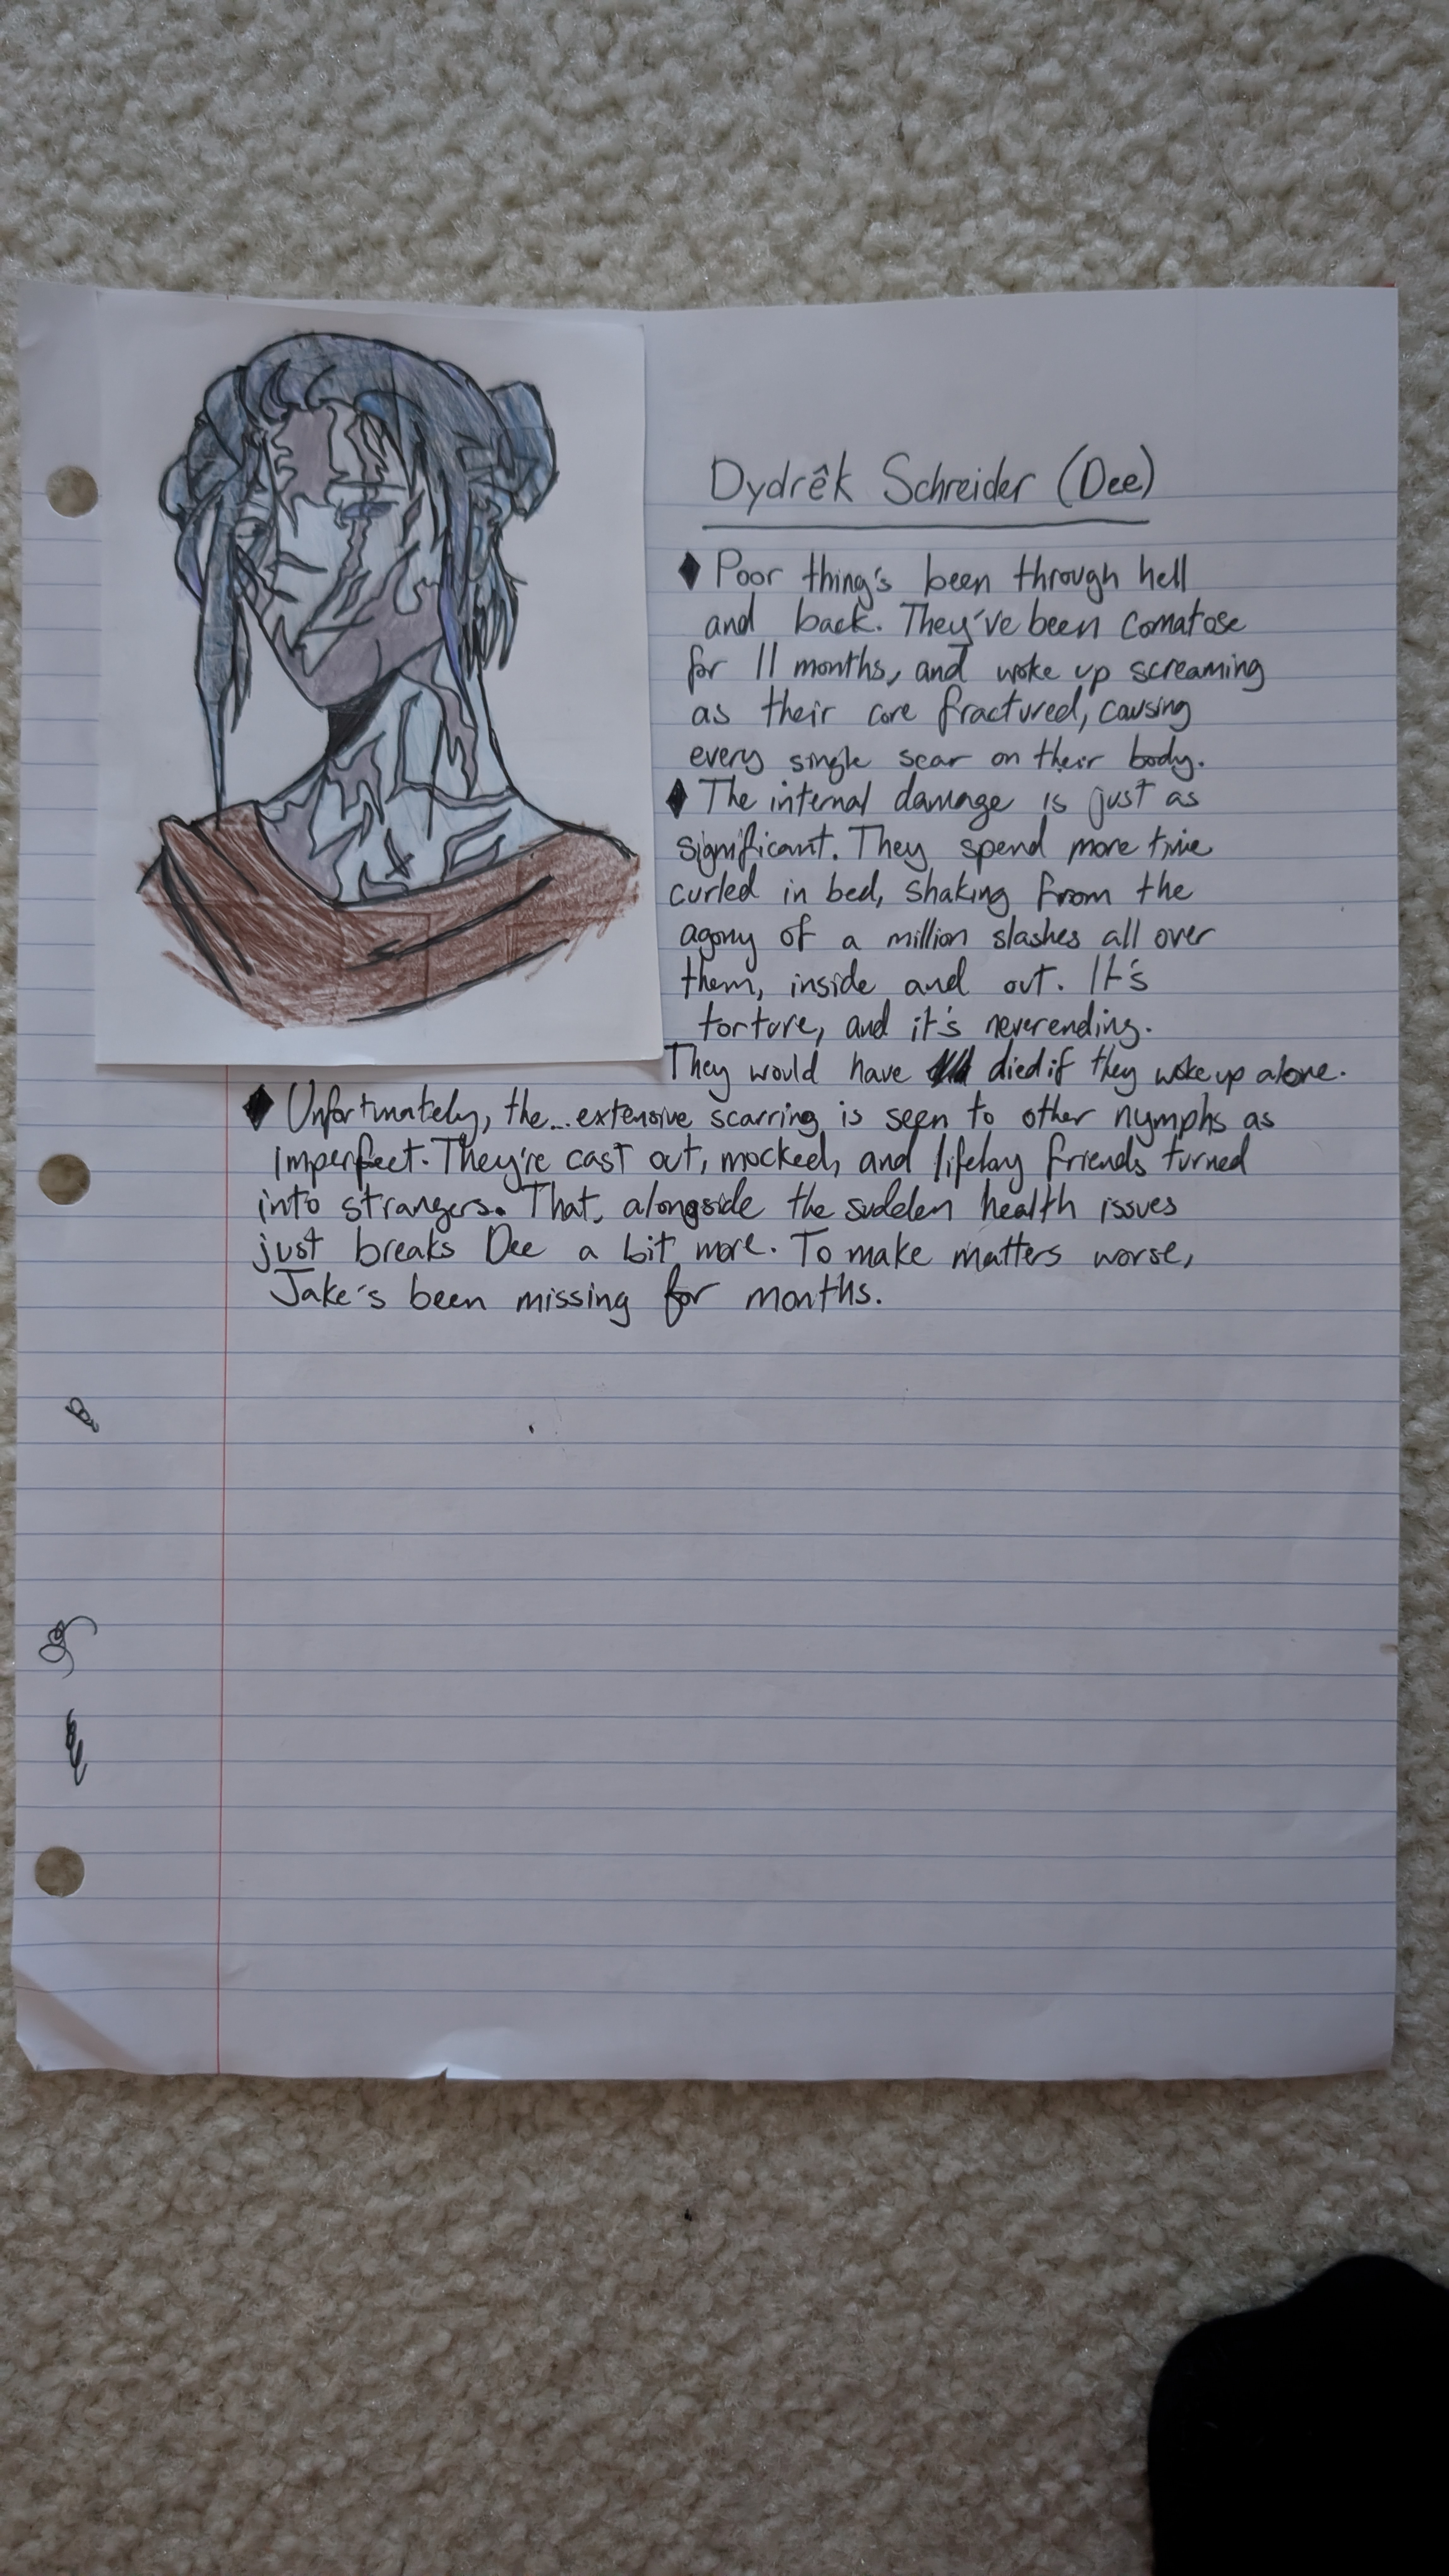 Dydrêk Schreider (Dee)
♦ Poor thing's been through hell
and back. They've been comatose
for 11 months, and woke up screaming
as their core fractured, causing
every single scar on their body.
♦ The internal damage is just as
significant. They spend more time
curled in bed, shaking from the
agony of a million slashes all over
them, inside and out. It's
torture, and it's neverending.
They would have died if they woke up alone.
♦ Unfortunately, the... extensive scarring is seen to other nymphs as
imperfect. They're cast out, mocked, and lifelong friends turned
into strangers. That, alongside the sudden health issues
just breaks Dee a bit more. To make matters worse,
Jake's been missing for months.